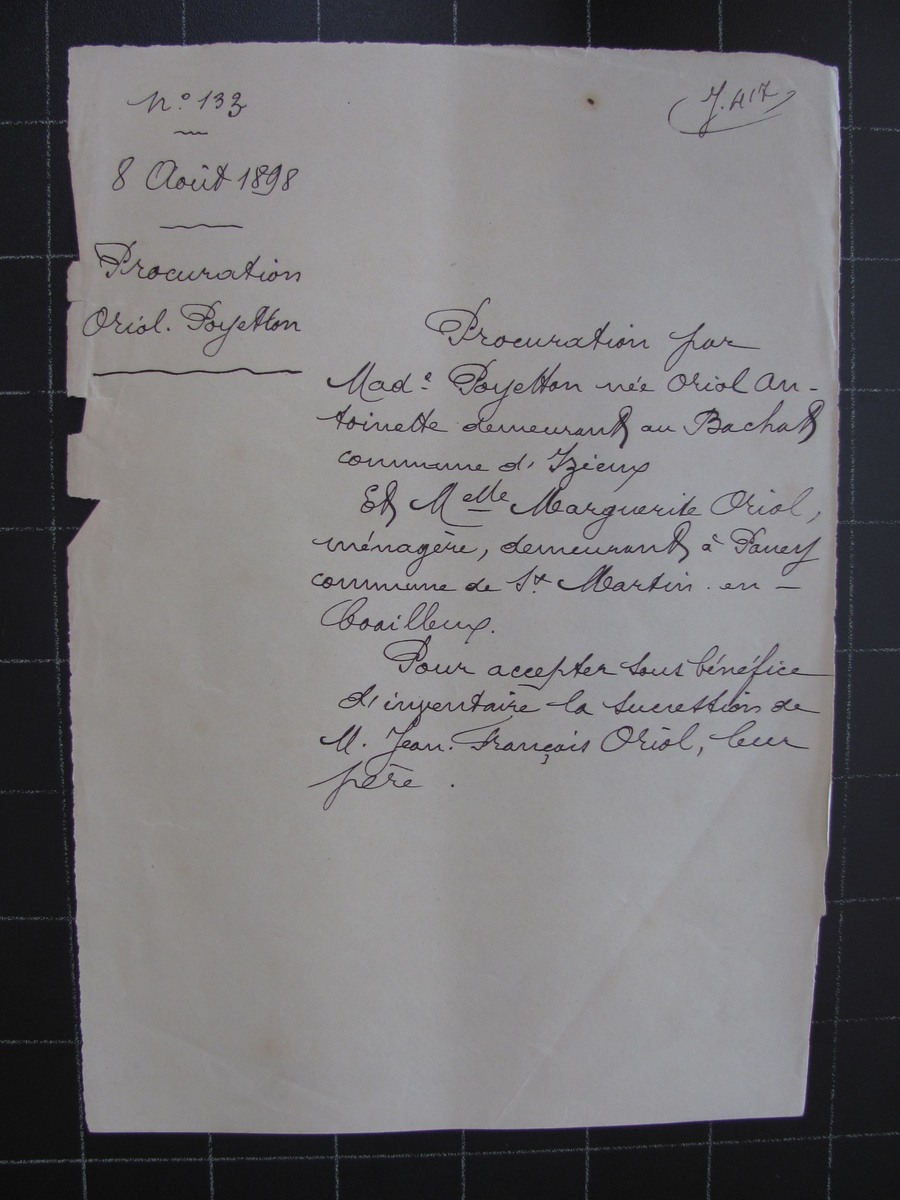 N.° 133
J. 417
8 Août 1898
Procuration
Oriol. Poyetton
Procuration par
Mad.e Poyetton née Oriol An-
toinette demeurant au Bachat
commune d'Izieux
Et Melle Marguerite Oriol,
ménagère, demeurant à
commune de St. Martin. en -
Coailleux.
Pour accepter sous bénéfice
d'inventaire la succession de
M. Jean. François Oriol, leur
père.